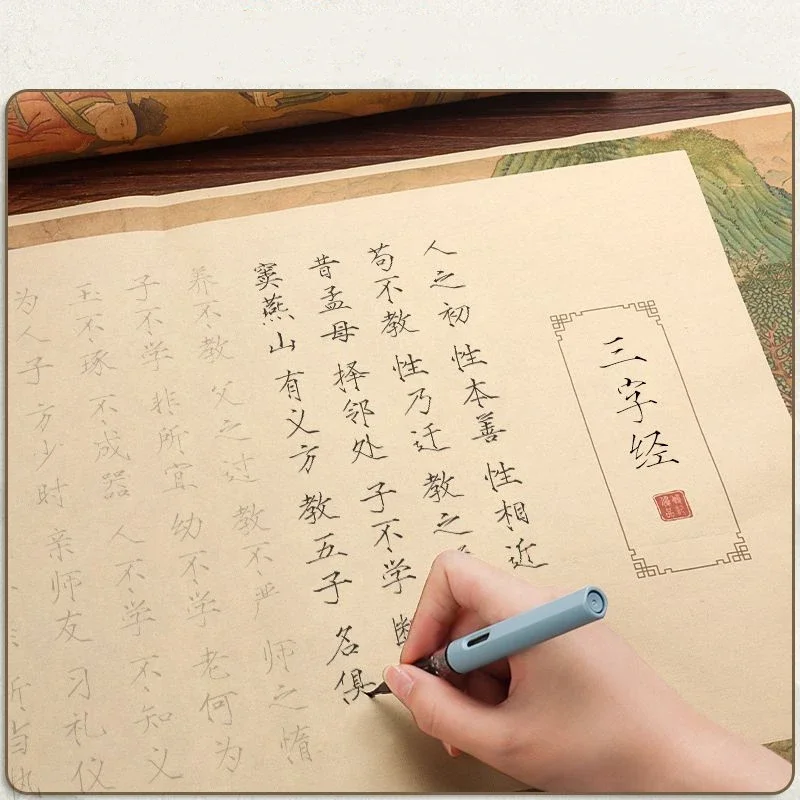 三字经
人之初 性本善 性相近
苟不教 性乃迁 教之
昔孟母 择邻处 子不学
窦燕山 有义方 教五子 名俱
养不教 父之过 教不严 师之惰
子不学 非所宜 幼不学 老何为
玉不琢 不成器 人不学 不知义
为人子 方少时 亲师友 习礼仪